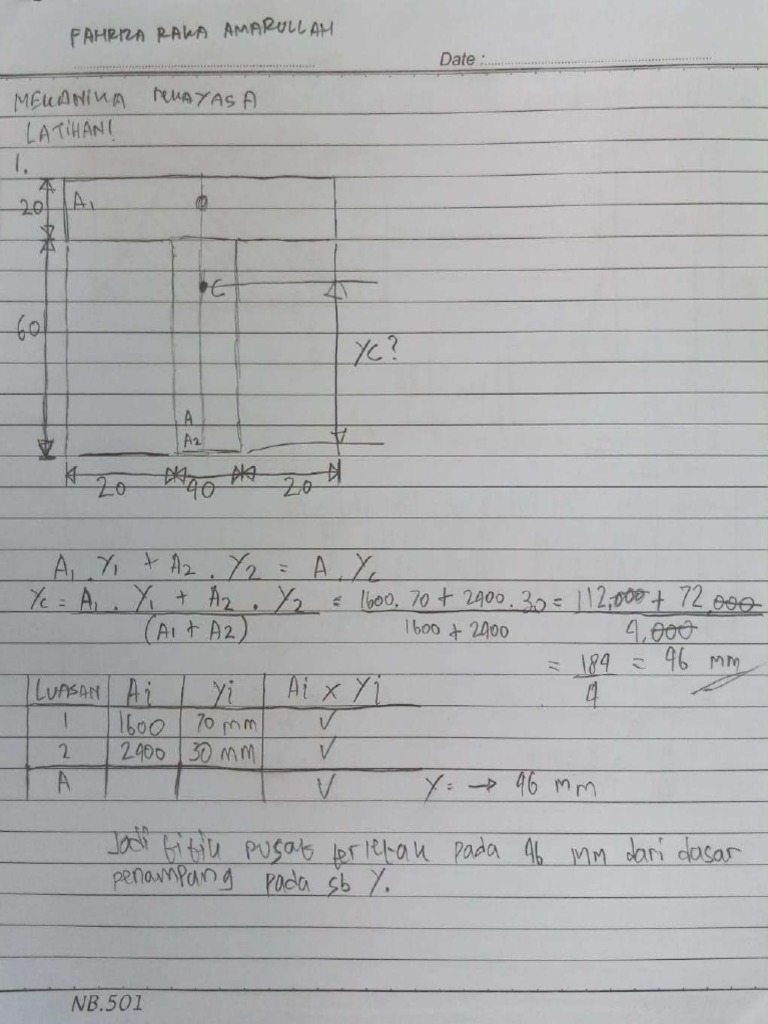 FAHRIZA RAKA AMARULLAH
Date :
MEKANIKA REKAYASA
LATIHAN!
1.
20
A1
C
60
YC?
A
A2
20 40 20
A1 . Y1 + A2 . Y2 = A . Yc
Yc = A1 . Y1 + A2 . Y2 / (A1 + A2) = 1600. 70 + 2400. 30 / 1600 + 2400 = 112,000 + 72,000 / 4,000
= 184 / 4 = 46 mm
LUASAN Ai Yi Ai x Yi
1 1600 70 mm √
2 2400 30 mm √
A √ Y= → 46 mm
Jadi titik pusat terletak pada 46 mm dari dasar
penampang pada sb Y.
NB.501